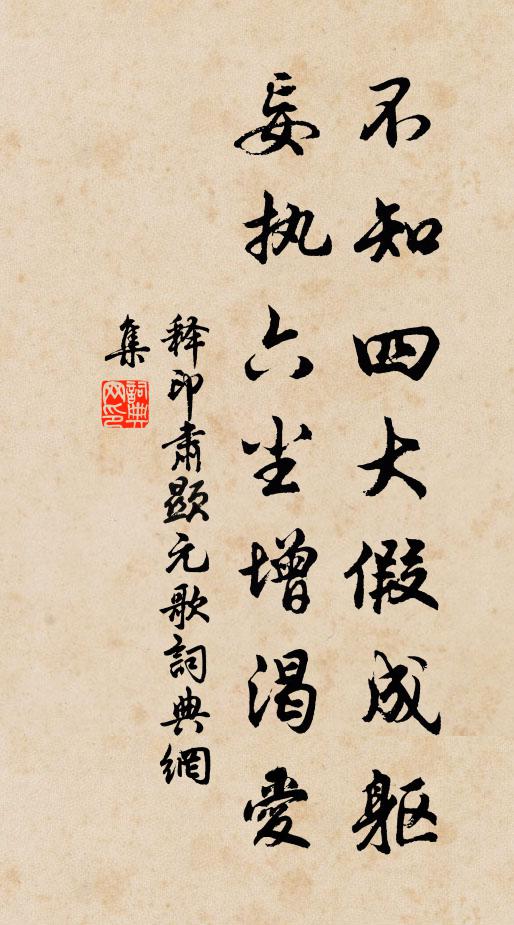 不知四大假成躯
妄执六尘增渴爱
释印肃顯元歌詞典網
集
詞典网印